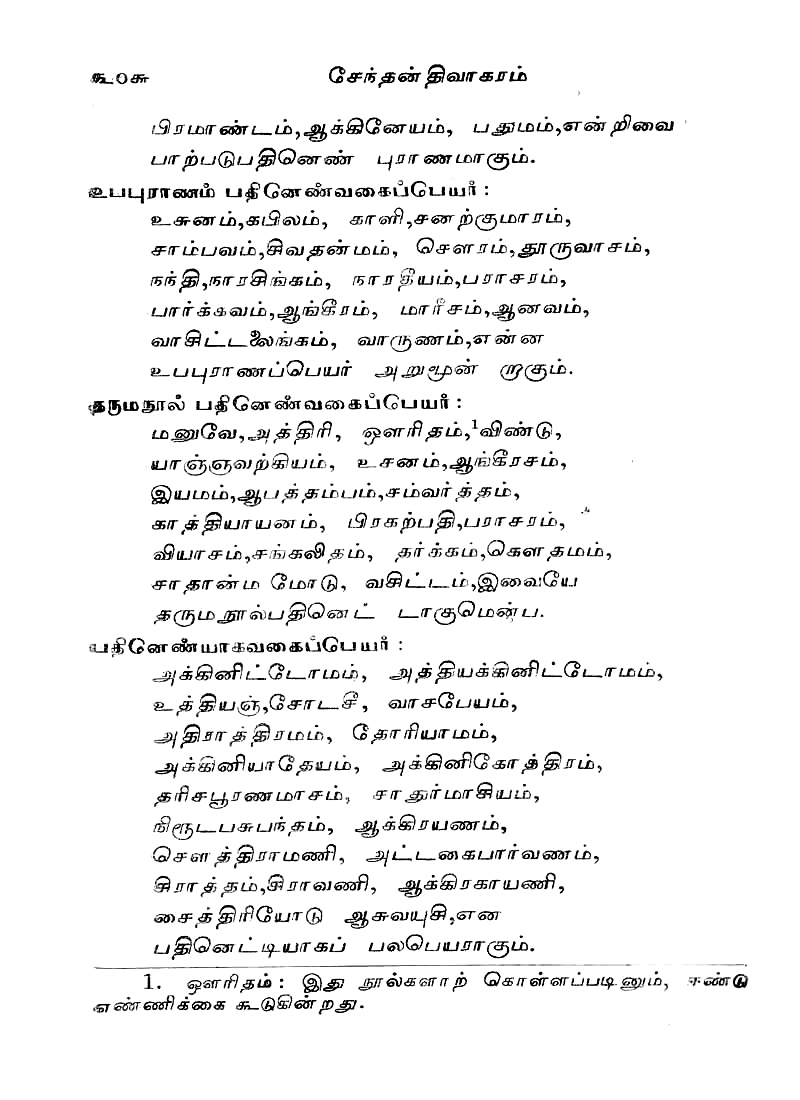 ௩௦௬ சேந்தன் திவாகரம்
பிரமாண்டம்,ஆக்கினேயம், பதுமம்,என் றிவை
பாற்படுபதினெண் புராணமாகும்.
உபபுராணம் பதினேண்வகைப்பெயர் :
உசுனம்,கபிலம், காளி,சனற்குமாரம்,
சாம்பவம்,சிவதன்மம், சௌரம்,தூருவாசம்,
நந்தி,நாரசிங்கம், நாரதீயம்,பராசரம்,
பார்க்கவம்,ஆங்கீரம், மாரீசம்,ஆனவம்,
வாசிட்டலைங்கம், வாருணம்,என்ன
உபபுராணப்பெயர் அறுமூன் றாகும்.
தருமநூல் பதினேண்வகைப்பெயர் :
மனுவே,அத்திரி, ஔரிதம்,¹விண்டு,
யாஞ்ஞவற்கியம், உசனம்,ஆங்கீரசம்,
இயமம்,ஆபத்தம்பம்,சம்வர்த்தம்,
காத்தியாயனம், பிரகற்பதி,பராசரம்,
வியாசம்,சங்கலிதம், தர்க்கம்,கௌதமம்,
சாதான்ம மோடு, வசிட்டம்,இவையே
தருமநூல்பதினெட் டாகுமென்ப.
பதினேண்யாகவகைப்பெயர் :
அக்கினிட்டோமம், அத்தியக்கினிட்டோமம்,
உத்தியஞ்,சோடசீ, வாசபேயம்,
அதிராத்திரமம், தோரியாமம்,
அக்கினியாதேயம், அக்கினிகோத்திரம்,
தரிசபூரணமாசம், சாதுர்மாசியம்,
நிரூடபசுபந்தம், ஆக்கிரயணம்,
சௌத்திராமணி, அட்டகைபார்வணம்,
சிராத்தம்,சிராவணி, ஆக்கிரகாயணி,
சைத்திரியோடு ஆசுவயுசி,என
பதினெட்டியாகப் பலபெயராகும்.
1. ஔரிதம் : இது நூல்களாற் கொள்ளப்படினும், ஈண்டு
எண்ணிக்கை கூடுகின்றது.